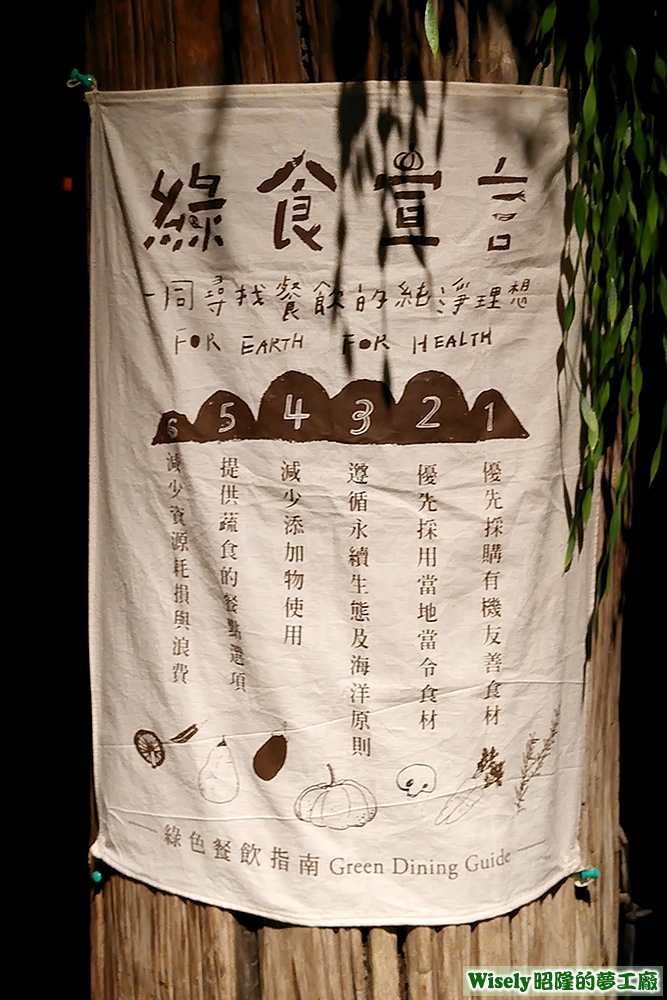 綠食宣言
一同尋找餐飲的純淨理想
FOR EARTH FOR HEALTH
1
優先採購有機友善食材
2
優先採用當地當令食材
3
遵循永續生態及海洋原則
4
減少添加物使用
5
提供蔬食的餐點選項
6
減少資源耗損與浪費
綠色餐飲指南 Green Dining Guide
Wisely昭隆的夢工廠